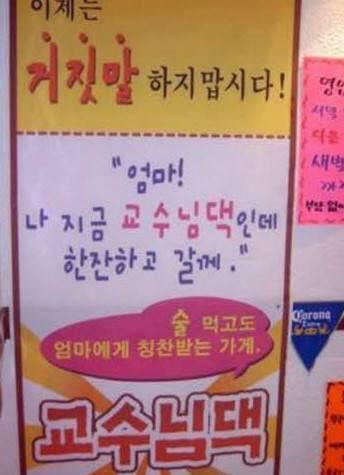 이제는
거짓말 하지맙시다!
"엄마!
나 지금 교수님댁인데
한잔하고 갈께."
술 먹고도
엄마에게 칭찬받는 가게.
교수님댁
Corona
Extra
새벽